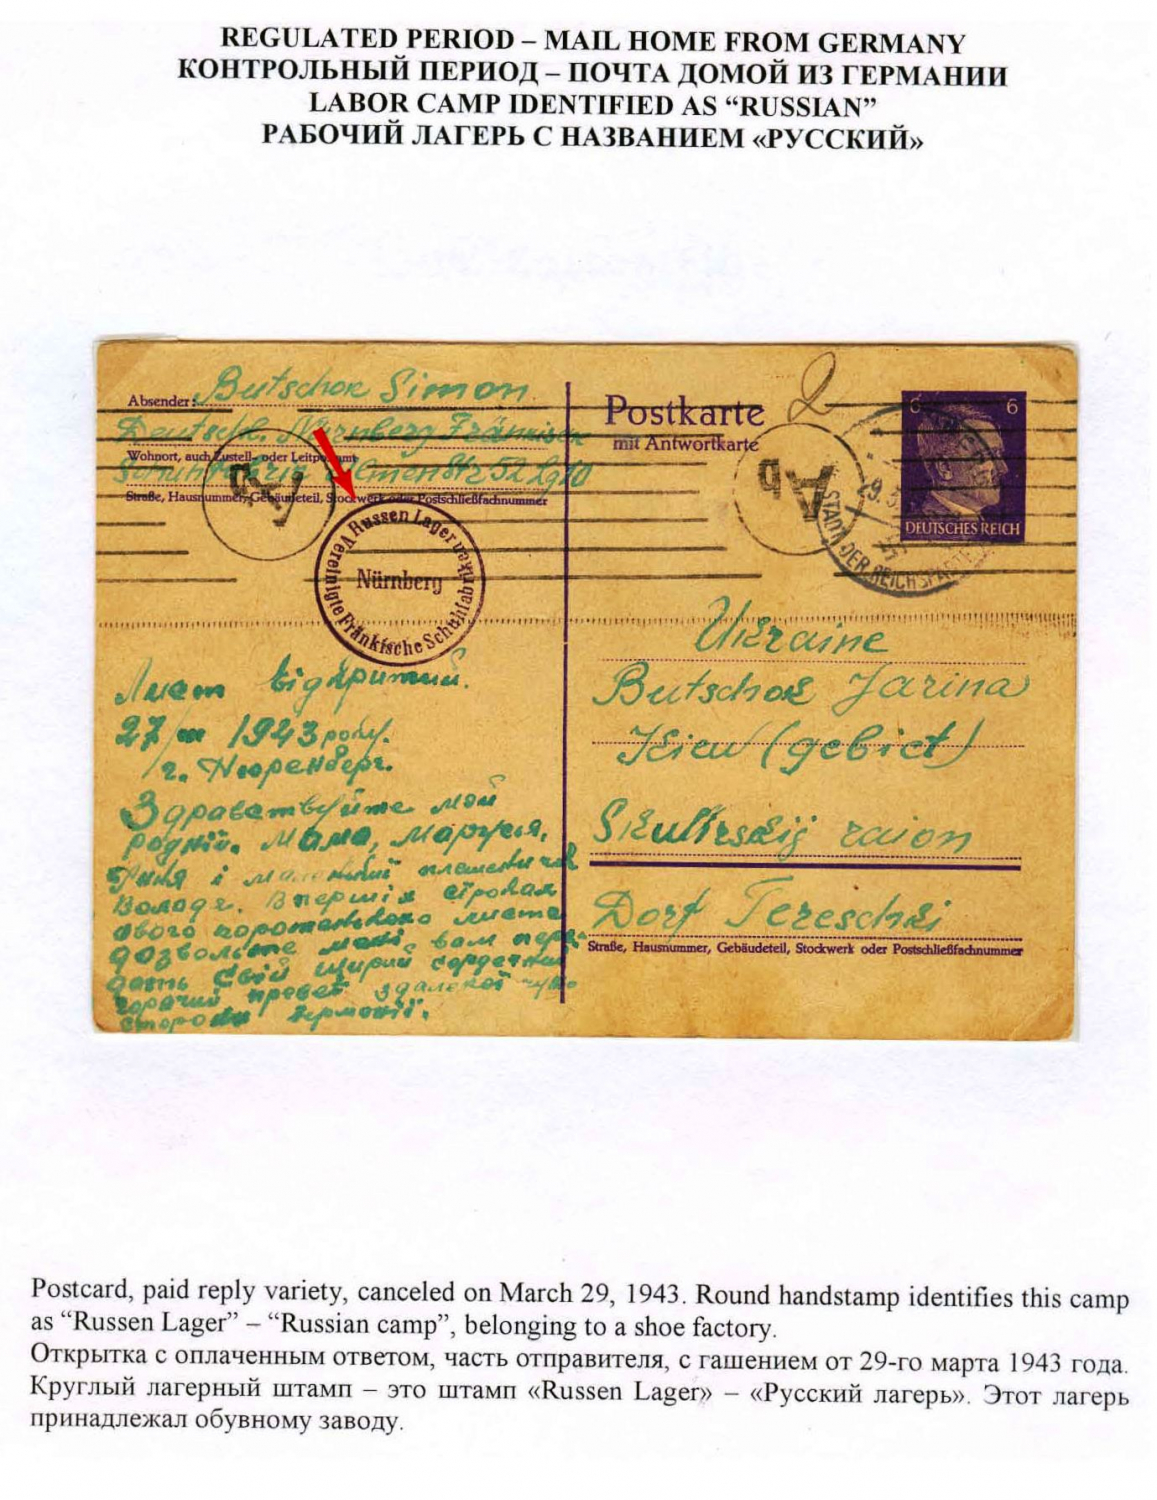 REGULATED PERIOD – MAIL HOME FROM GERMANY
КОНТРОЛЬНЫЙ ПЕРИОД – ПОЧТА ДОМОЙ ИЗ ГЕРМАНИИ
LABOR CAMP IDENTIFIED AS “RUSSIAN”
РАБОЧИЙ ЛАГЕРЬ С НАЗВАНИЕМ «РУССКИЙ»
Absender: Butschok Simon
Deutschl. Nürnberg Fränkische
Wohnort, auch Zustell- oder Leitpostamt
52 Lg 10
Straße, Hausnummer, Gebäudeteil, Stockwerk oder Postschließfachnummer
Ab
Russen Lager
Vereinigte Fränkische Schuhfabriken
Nürnberg
Лист відкритий.
27/III 1943 року.
г. Нюренберг.
Здравствуйте мої
рідні. Мама, Маруся,
і маленький племінничок
Володя. В перших строках
свого коротенького листа
дозвольте мені вам пере-
дать свій щирий сердечний
горячий превет з далекої чужо
сторони Германії.
Postkarte
mit Antwortkarte
2
Ab
6 6
DEUTSCHES REICH
STADT DER REICHSPARTEITAGE
29.3.
Ukraine
Butschok Jarina
Kiew (gebiet)
Skwirskij raion
Dorf Tereschki
Straße, Hausnummer, Gebäudeteil, Stockwerk oder Postschließfachnummer
Postcard, paid reply variety, canceled on March 29, 1943. Round handstamp identifies this camp
as “Russen Lager” – “Russian camp”, belonging to a shoe factory.
Открытка с оплаченным ответом, часть отправителя, с гашением от 29-го марта 1943 года.
Круглый лагерный штамп – это штамп «Russen Lager» – «Русский лагерь». Этот лагерь
принадлежал обувному заводу.